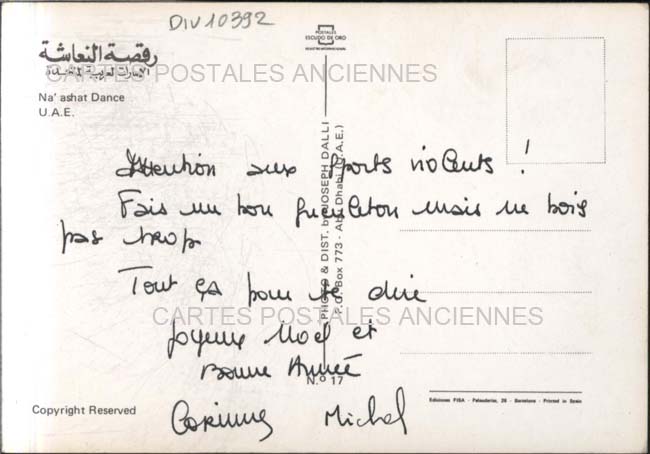 DIV10392
POSTALES
ESCUDO DE ORO
REGISTRO INTERNACIONAL
رقصة النعاشة
الإمارات العربية المتحدة
CARTES POSTALES ANCIENNES
Na' ashat Dance
U.A.E.
Attention aux sports violents !
Fais un bon gueuleton mais ne bois
pas trop
Tout ça pour te dire
CARTES POSTALES ANCIENNES
Joyeux Noel et
Bonne Année
Corinne Michel
PHOTO & DIST. by JOSEPH DALLI
P.O. Box 773 - Abu Dhabi (U.A.E.)
N.º 17
Copyright Reserved
Ediciones FISA - Palaudarias, 26 - Barcelona - Printed in Spain